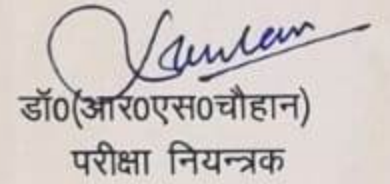 डॉ0(आर0एस0चौहान)
परीक्षा नियन्त्रक